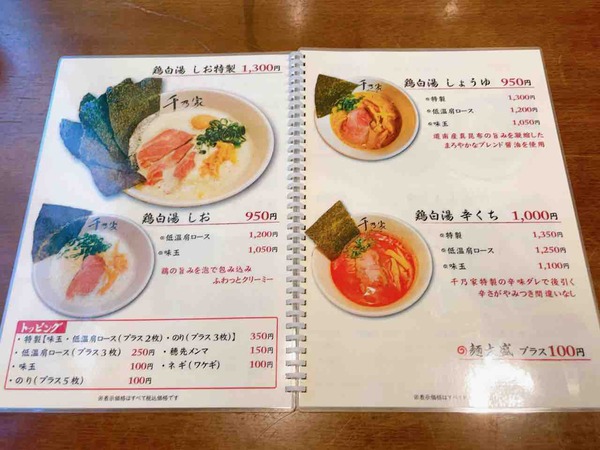 鶏白湯 しお特製 1,300円
千乃家
鶏白湯 しお 950円
※低温肩ロース 1,200円
※味玉 1,050円
鶏の旨みを泡で包み込み
ふわっとクリーミー
千乃家
トッピング
・特製【味玉・低温肩ロース(プラス2枚)・のり(プラス3枚)】 350円
・低温肩ロース(プラス3枚) 250円 ・穂先メンマ 150円
・味玉 100円 ・ネギ(ワケギ) 100円
・のり(プラス5枚) 100円
※表示価格はすべて税込価格です
鶏白湯 しょうゆ 950円
千乃家
※特製 1,300円
※低温肩ロース 1,200円
※味玉 1,050円
道南産真昆布の旨みを凝縮した
まろやかなブレンド醤油を使用
鶏白湯 辛くち 1,000円
千乃家
※特製 1,350円
※低温肩ロース 1,250円
※味玉 1,100円
千乃家特製の辛味ダレで後引く
辛さがやみつき間違いなし
麺大盛 プラス100円
※表示価格はすべて